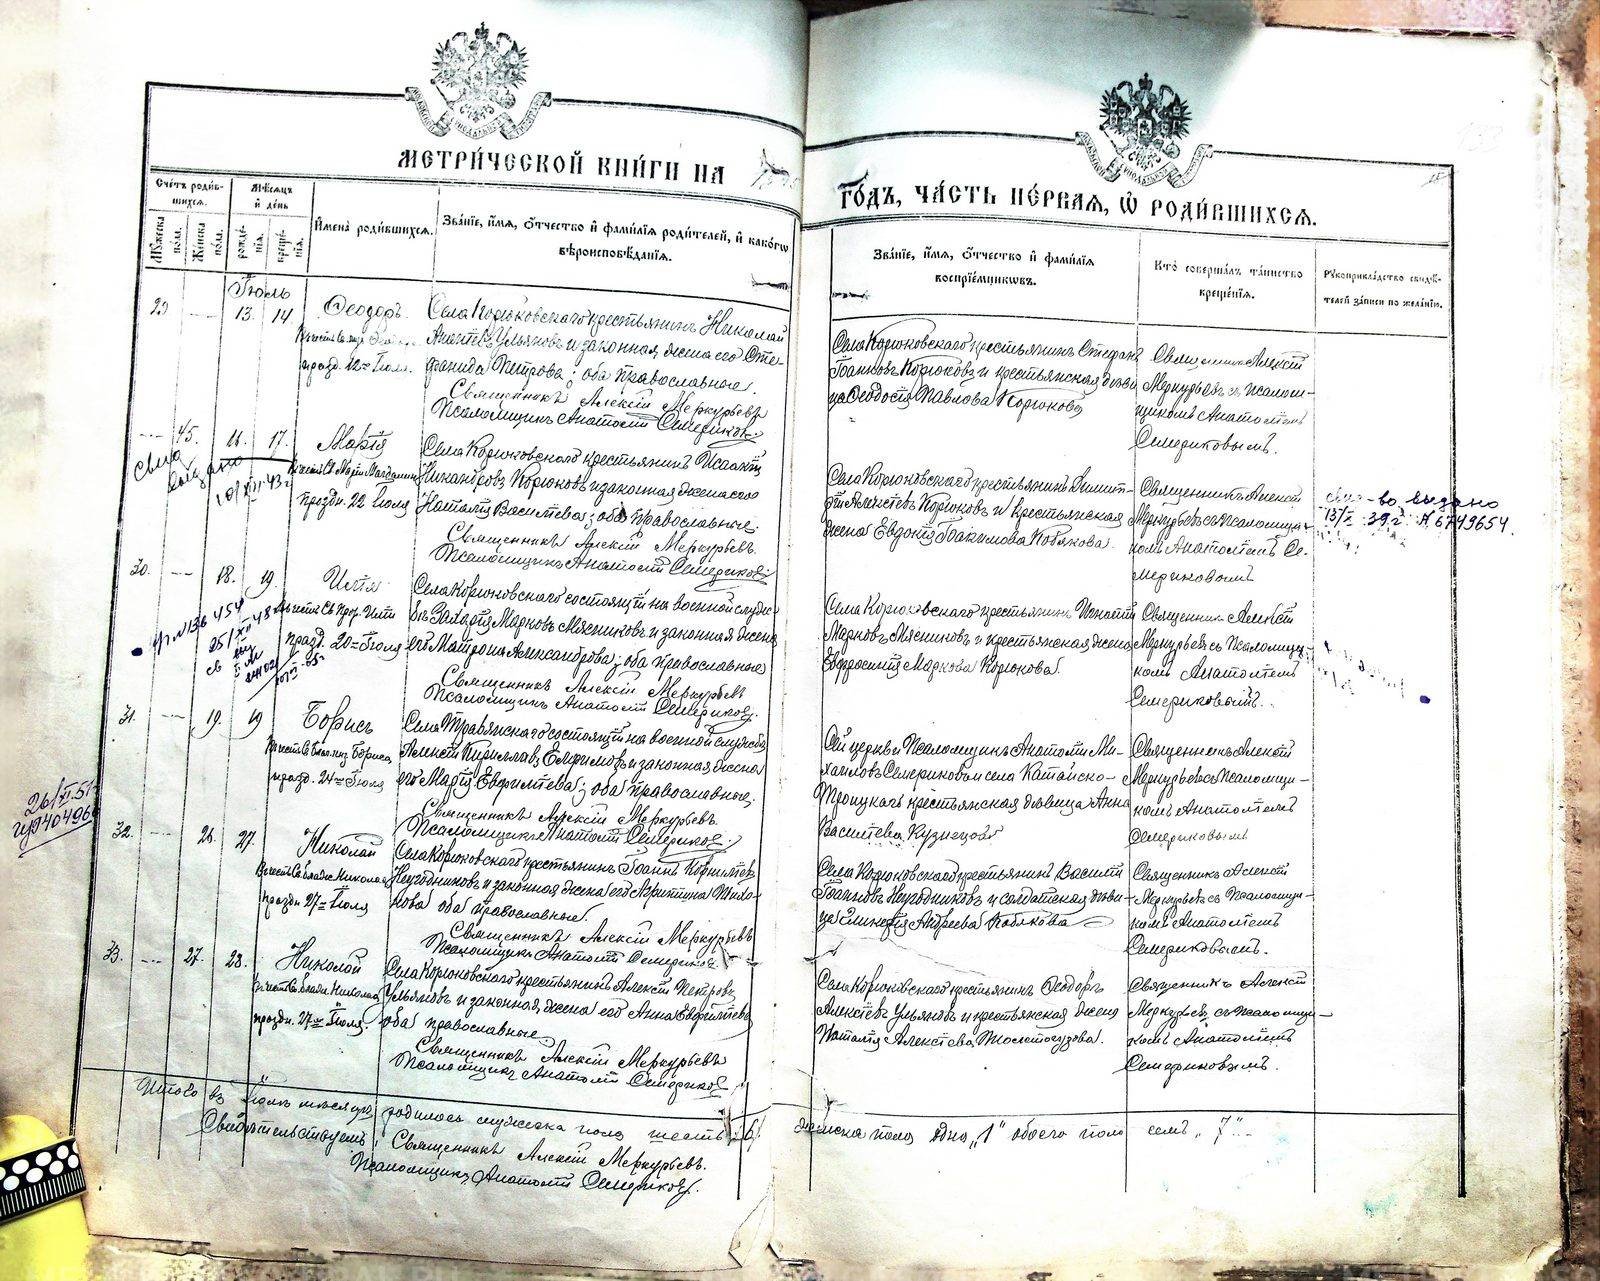 МЕТРИ́ЧЕСКОЙ КНИ́ГИ НА
ГО́ДЪ, ЧА́СТЬ ПЕ́РВАЯ, Ѽ РОДИ́ВШИХСЯ.
Сче́тъ роди́в-
шихся.
Мѣ́сяцъ
и҆ де́нь
Мꙋ́жеска
по́ла.
Же́нска
по́ла.
рожде́-
нїя.
креще́-
нїя.
И҆мена̀ роди́вшихся.
Зва́нїе, и҆́мя, ѻ҆́тчество и҆ фами́лїя роди́телей, и҆ како́гѡ
вѣроисповѣ́данїя.
Зва́нїе, и҆́мя, ѻ҆́тчество и҆ фами́лїя
воспрїе́мникѡвъ.
Кто̀ соверша́лъ та́инство
креще́нїя.
Рꙋкоприкла́дство свидѣ́-
телей за́писи по жела́нїю.
Іюль
29 — 13. 14 Ѳеодоръ.
празд. 12го Іюля.
Села Корюковскаго крестьянинъ Николай
Ульяновъ и законная жена его Сте-
фанида Петрова; оба православные.
Священникъ Алексій Меркурьевъ
Псаломщикъ Анатолій Семериковъ
Села Корюковскаго крестьянинъ Стефанъ
Іоанновъ Корюковъ и крестьянская дѣви-
ца Ѳеодосія Павлова Корюкова
Священникъ Алексій
Меркурьевъ съ псалом-
щикомъ Анатоліемъ
Семериковымъ.
— 45. 16. 17. Марія
въ честь Св. Маріи Магдалины
праздн. 22 Іюля
Села Корюковскаго крестьянинъ Исаакій
Никандровъ Корюковъ и законная жена его
Наталія Васильева; оба православные.
Священникъ Алексій Меркурьевъ.
Псаломщикъ Анатолій Семериковъ
Села Корюковскаго крестьянинъ Димит-
рій Алексѣевъ Корюковъ и крестьянская
жена Евдокія Іоакимова Кобякова.
Священникъ Алексій
Меркурьевъ съ псаломщи-
комъ Анатоліемъ Се-
мериковымъ
св-во выдано
39 г. 6749654.
30. — 18. 19. Илія
въ честь Св. Прор. Иліи
празд. 20го Іюля
Села Корюковскаго состоящій на военной служ-
бѣ Захарія Марковъ Мясниковъ и законная жена
его Матрона Александрова; оба православные
Священникъ Алексій Меркурьевъ
Псаломщикъ Анатолій Семериковъ.
Села Корюковскаго крестьянинъ Игнатій
Марковъ Мясниковъ и крестьянская жена
Евфросинія Маркова Корюкова.
Священникъ Алексій
Меркурьевъ съ Псаломщи-
комъ Анатоліемъ
Семериковымъ.
31. — 19. 19 Борисъ
празд. 24го Іюля
Села Травянскаго состоящій на военной службѣ
Алексій Кирилловъ Елфимовъ и законная жена
его Марія Евфиміева; оба православные.
Священникъ Алексій Меркурьевъ.
Псаломщикъ Анатолій Семериковъ.
Сей церкви Псаломщикъ Анатолій Ми-
хаиловъ Семериковъ и села Катайско-
Троицкаго крестьянская дѣвица Анна
Васильева Кузнецова
Священникъ Алексій
Меркурьевъ съ Псаломщи-
комъ Анатоліемъ
Семериковымъ
32. — 26. 27. Николай
праздн 27го Іюля
Села Корюковскаго крестьянинъ Іоаннъ
Неугодниковъ и законная жена его Агриппина Тихо-
нова оба православные.
Священникъ Алексій Меркурьевъ
Псаломщикъ Анатолій Семериковъ
Села Корюковскаго крестьянинъ Василій
Іоанновъ Неугодниковъ и солдатская дѣви-
ца Андреева Кобякова
Священникъ Алексій
Меркурьевъ съ Псаломщи-
комъ Анатоліемъ
Семериковымъ.
33. — 27. 28. Николай
праздн. 27го Іюля.
Села Корюковскаго крестьянинъ Алексій Петровъ
Ульяновъ и законная жена его Анна
оба православные.
Священникъ Алексій Меркурьевъ
Псаломщикъ Анатолій Семериковъ
Села Корюковскаго крестьянинъ Ѳеодоръ
Алексѣевъ Ульяновъ и крестьянская жена
Наталія Алексѣева Толстогузова.
Священникъ Алексій
Меркурьевъ съ псаломщи-
комъ Анатоліемъ
Семериковымъ.
Итого въ Іюлѣ мѣсяцѣ родилось мужеска пола шесть „6“ женска пола одно „1“ обоего пола семь „7“.
Свидѣтельствуемъ: Священникъ Алексій Меркурьевъ.
Псаломщикъ Анатолій Семериковъ.